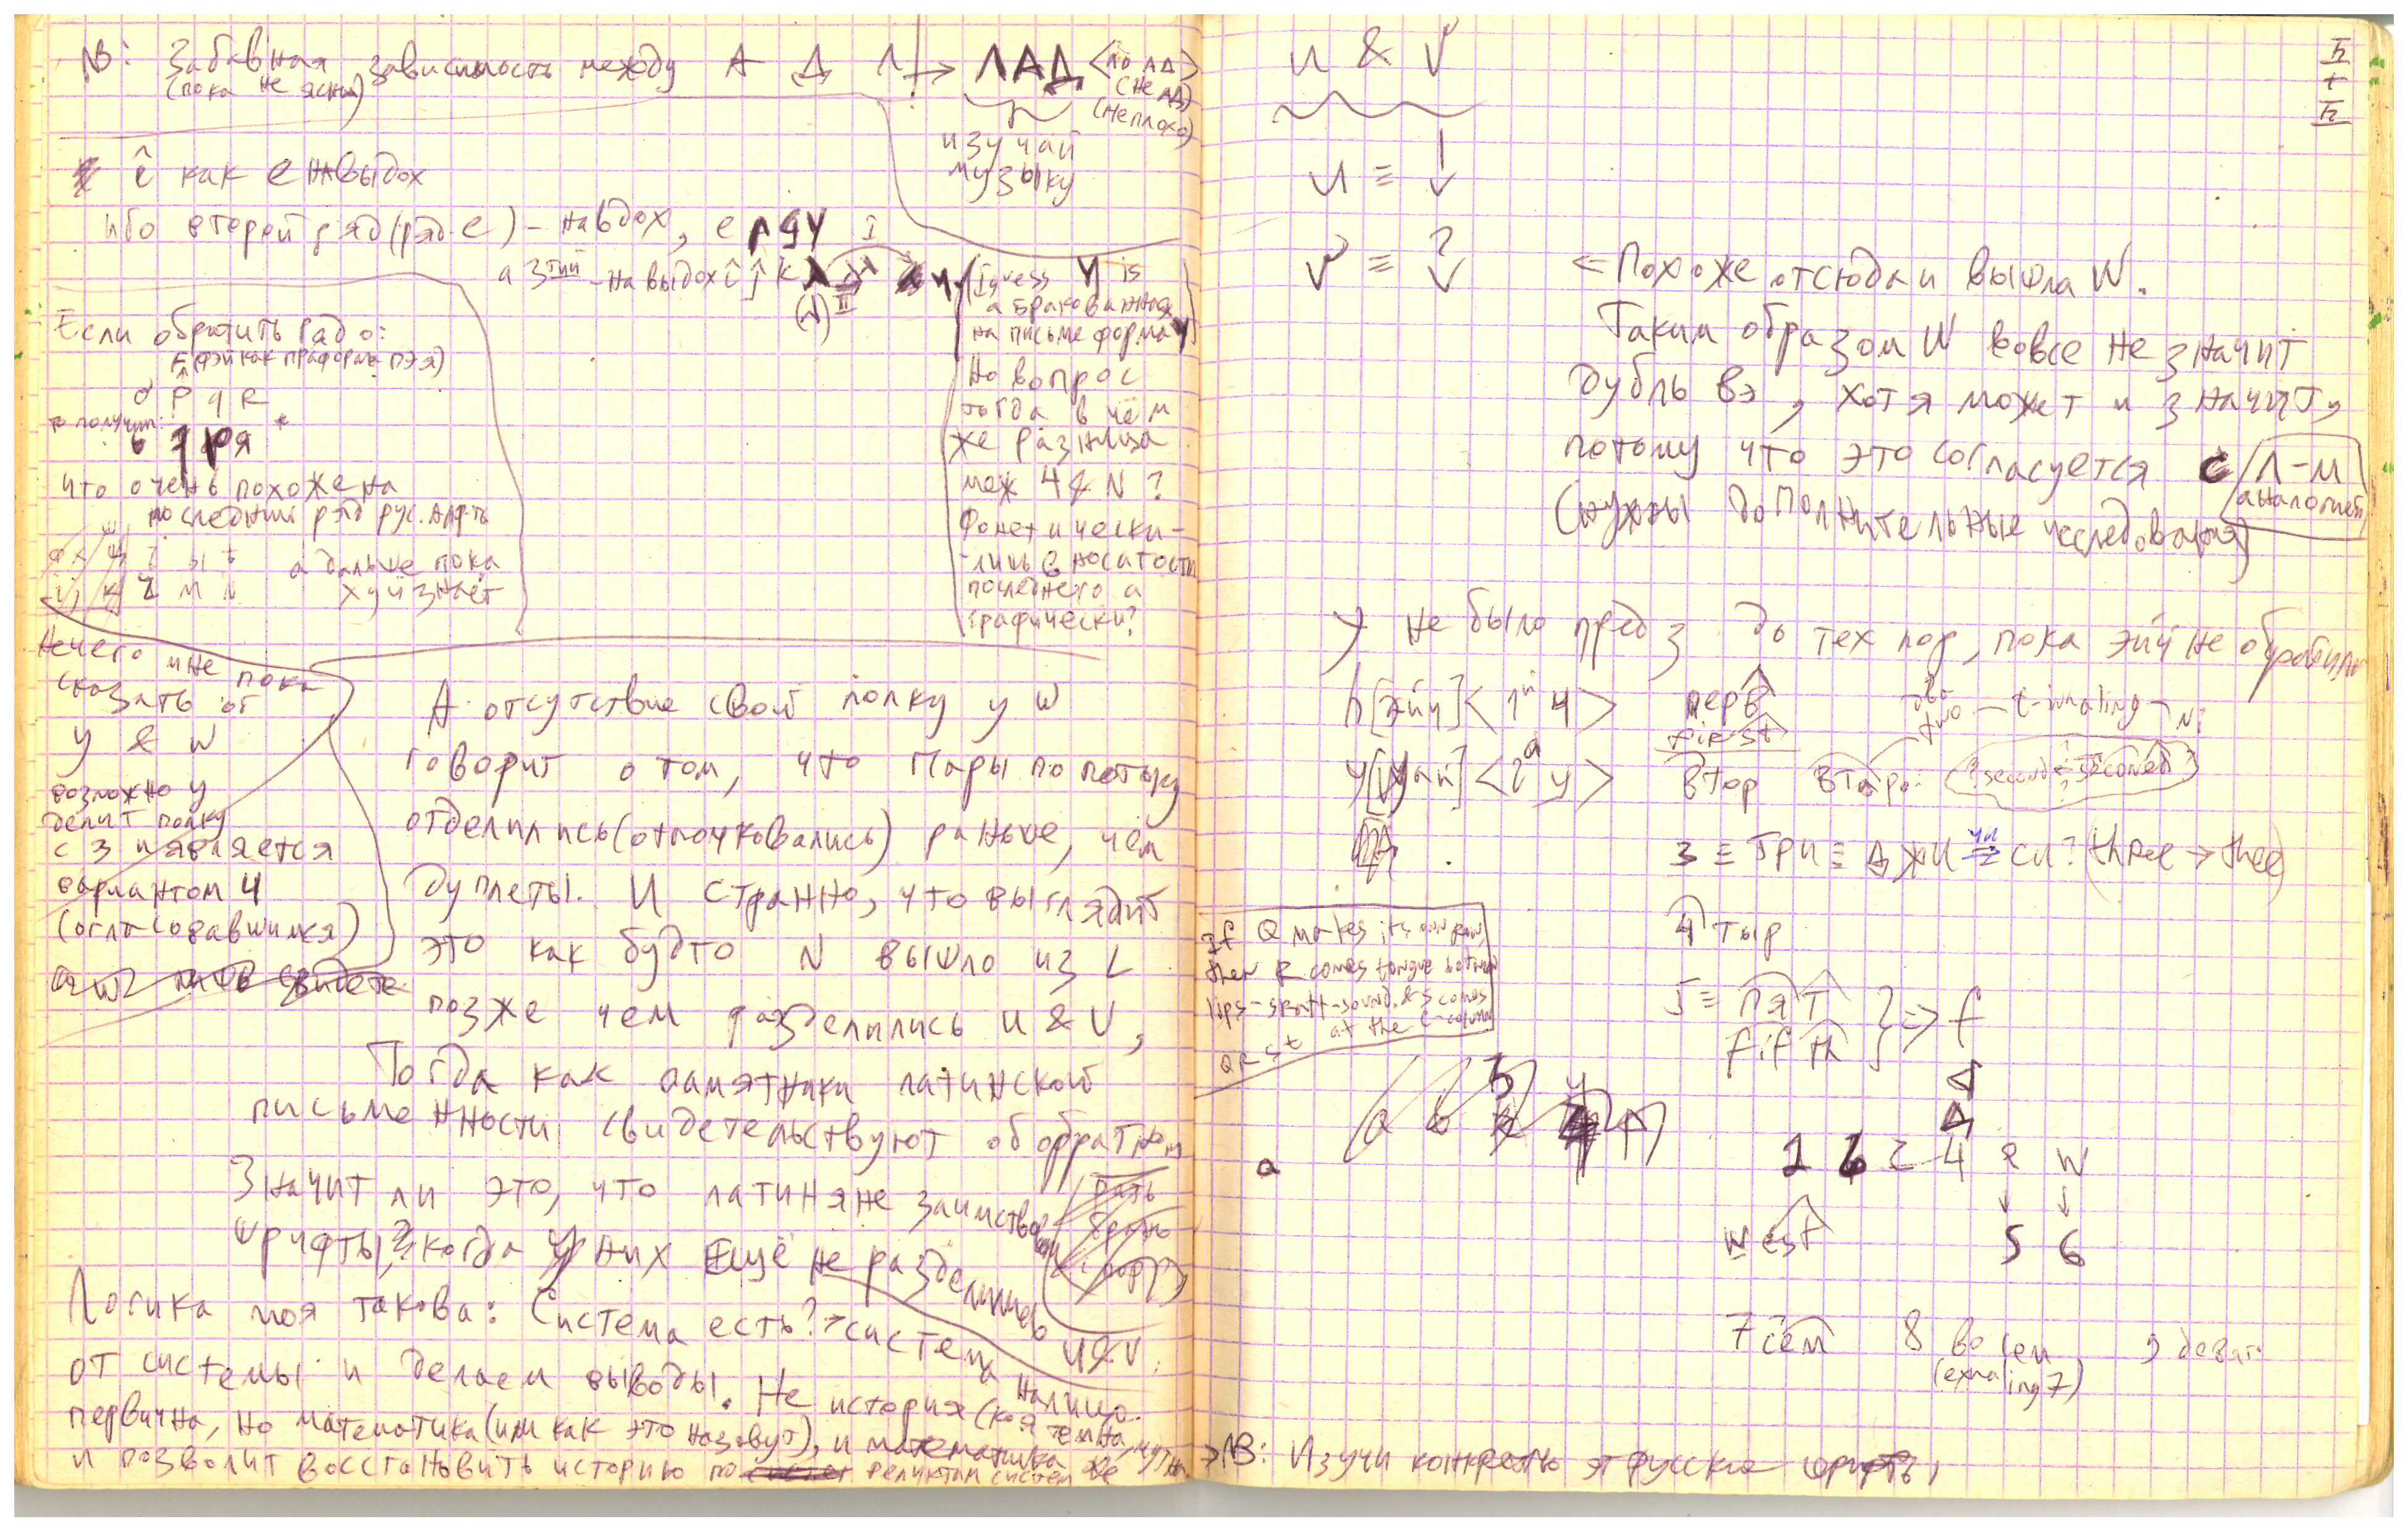 NB: Забавная зависимость между А Д Л → ЛАД <по ЛД>
(пока не ясная)
(не АД)
(неплохо)
изучай
музыку
î как е на выдох
ибо второй ряд (ряд е) – на вдох, е
а 3тий – на выдох î ĵ k λ
(Iguess Y is
а бракованная
на письме форма Ч)
Но вопрос
тогда в чём
же разница
меж Ч & N ?
Фонетически –
– лишь в носатости
последнего а
графически?
Если обратить ряд о:
F (фэй как праформа пэя)
о P q R
то получим:
ь я
что очень похоже на
последний ряд рус. алф-та
а дальше пока
хуй знает
Нечего мне пока
сказать от
У & W
возможно у
делит полку
с 3 и является
вариантом Ч
(огласовавшимся)
А отсутствие свой полку у W
говорит о том, что Пары по потоку
отделились (отпочковались) раньше, чем
дуплеты. И странно, что выглядит
это как будто N вышло из L
позже чем разделились U & V,
Тогда как памятники латинской
письменности свидетельствуют об обратном
Значит ли это, что латиняне заимствовали
шрифты, когда у них ещё не разделились
U & V.
Логика моя такова: Система есть? → система налицо.
от системы и делаем выводы. Не история (коя темна
первична, но математика (или как это назовут), и математика
и позволит восстановить историю по реликтам систем же
U & V
U ≡ !
V ≡ ?
← Похоже отсюда и вышла W.
Таким образом W вовсе не значит
Дубль вэ, хотя может и значить,
потому что это согласуется с Л–М
аналогией
(нужны дополнительные исследования)
У не было пред 3 до тех пор, пока эйч не обратили
h [эйч] < 1й Ч > перв
first
two – t-inhaling – N
y [уай] < 2а У > втор второ: (? second ÷ seconed ?)
3 ≡ Три ≡ джи си? (three → thee)
4 тыр
If Q makes its own row,
then R comes tongue between
lips – sound. & S comes
at the C-column
QRSt
5 ≡ пят } ⇒ f
fifth
а
1 6 2 4 R W
↓ ↓
west 5 6
7 сём 8 восем 9 девят
(exhaling 7)
→ NB: Изучи конкретно этрусские шрифты,